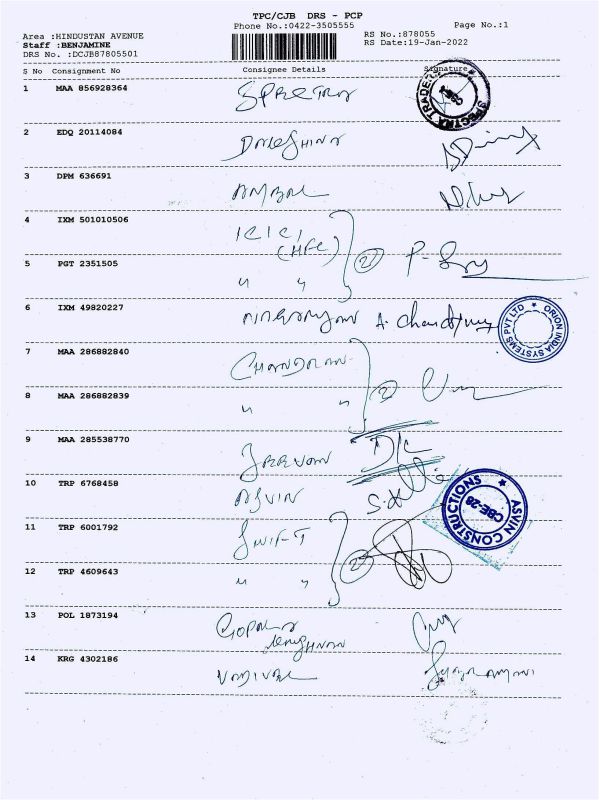 TPC/CJB DRS - PCP
Phone No.:0422-3505555
Page No.:1
Area :HINDUSTAN AVENUE
Staff :BENJAMINE
DRS No. :DCJB87805501
RS No.:878055
RS Date:19-Jan-2022
S No Consignment No Consignee Details Signature
1 MAA 856928364
SPECTRA TRADE
2 EDQ 20114084
3 DPM 636691 AMBAL
4 IXM 501010506 ICICI
(HFC)
2
5 PGT 2351505 " "
6 IXM 49820227
ORION INDIA SYSTEMS PVT LTD
7 MAA 286882840 CHANDRAN
2
8 MAA 286882839 " "
9 MAA 285538770
10 TRP 6768458 ASVIN
ASVIN CONSTRUCTIONS
CBE-28
11 TRP 6001792 SWIFT
2
12 TRP 4609643 " "
13 POL 1873194
14 KRG 4302186 VADIVEL